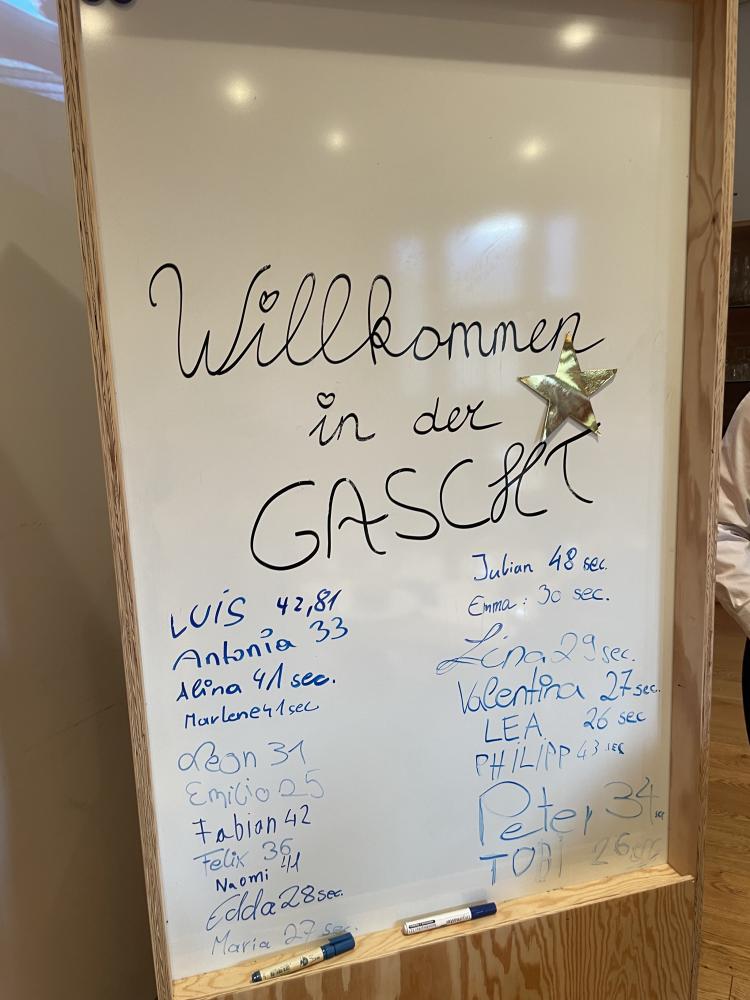 Willkommen
in der
GASCHT
LUIS 42,81
Antonia 33
Alina 41 sec.
Marlene 41 sec
Leon 31
Emilio 25
Fabian 42
Felix 36
Naomi 41
Edda 28 sec.
Maria 27 sec.
Julian 48 sec.
Emma: 30 sec.
Lina 29 sec.
Valentina 27 sec.
LEA 26 sec
PHILIPP 43 sec
Peter 34 sec
TOBI 26 sec